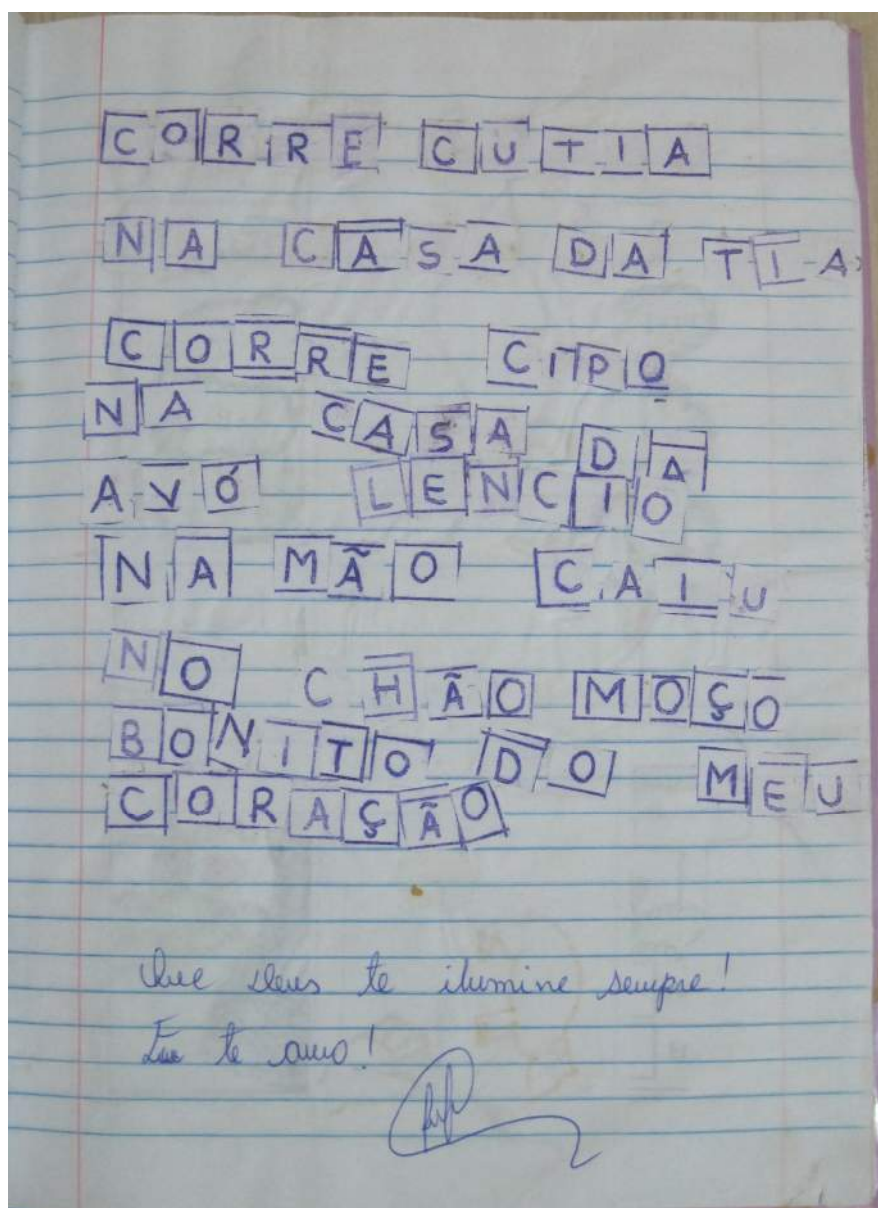 CORRE CUTIA
NA CASA DA TIA
CORRE CIPO
NA CASA DA
AVÓ LENCIO
NA MÃO CAIU
NO CHÃO MOÇO
BONITO DO MEU
CORAÇÃO
Que Deus te ilumine sempre!
Eu te amo!